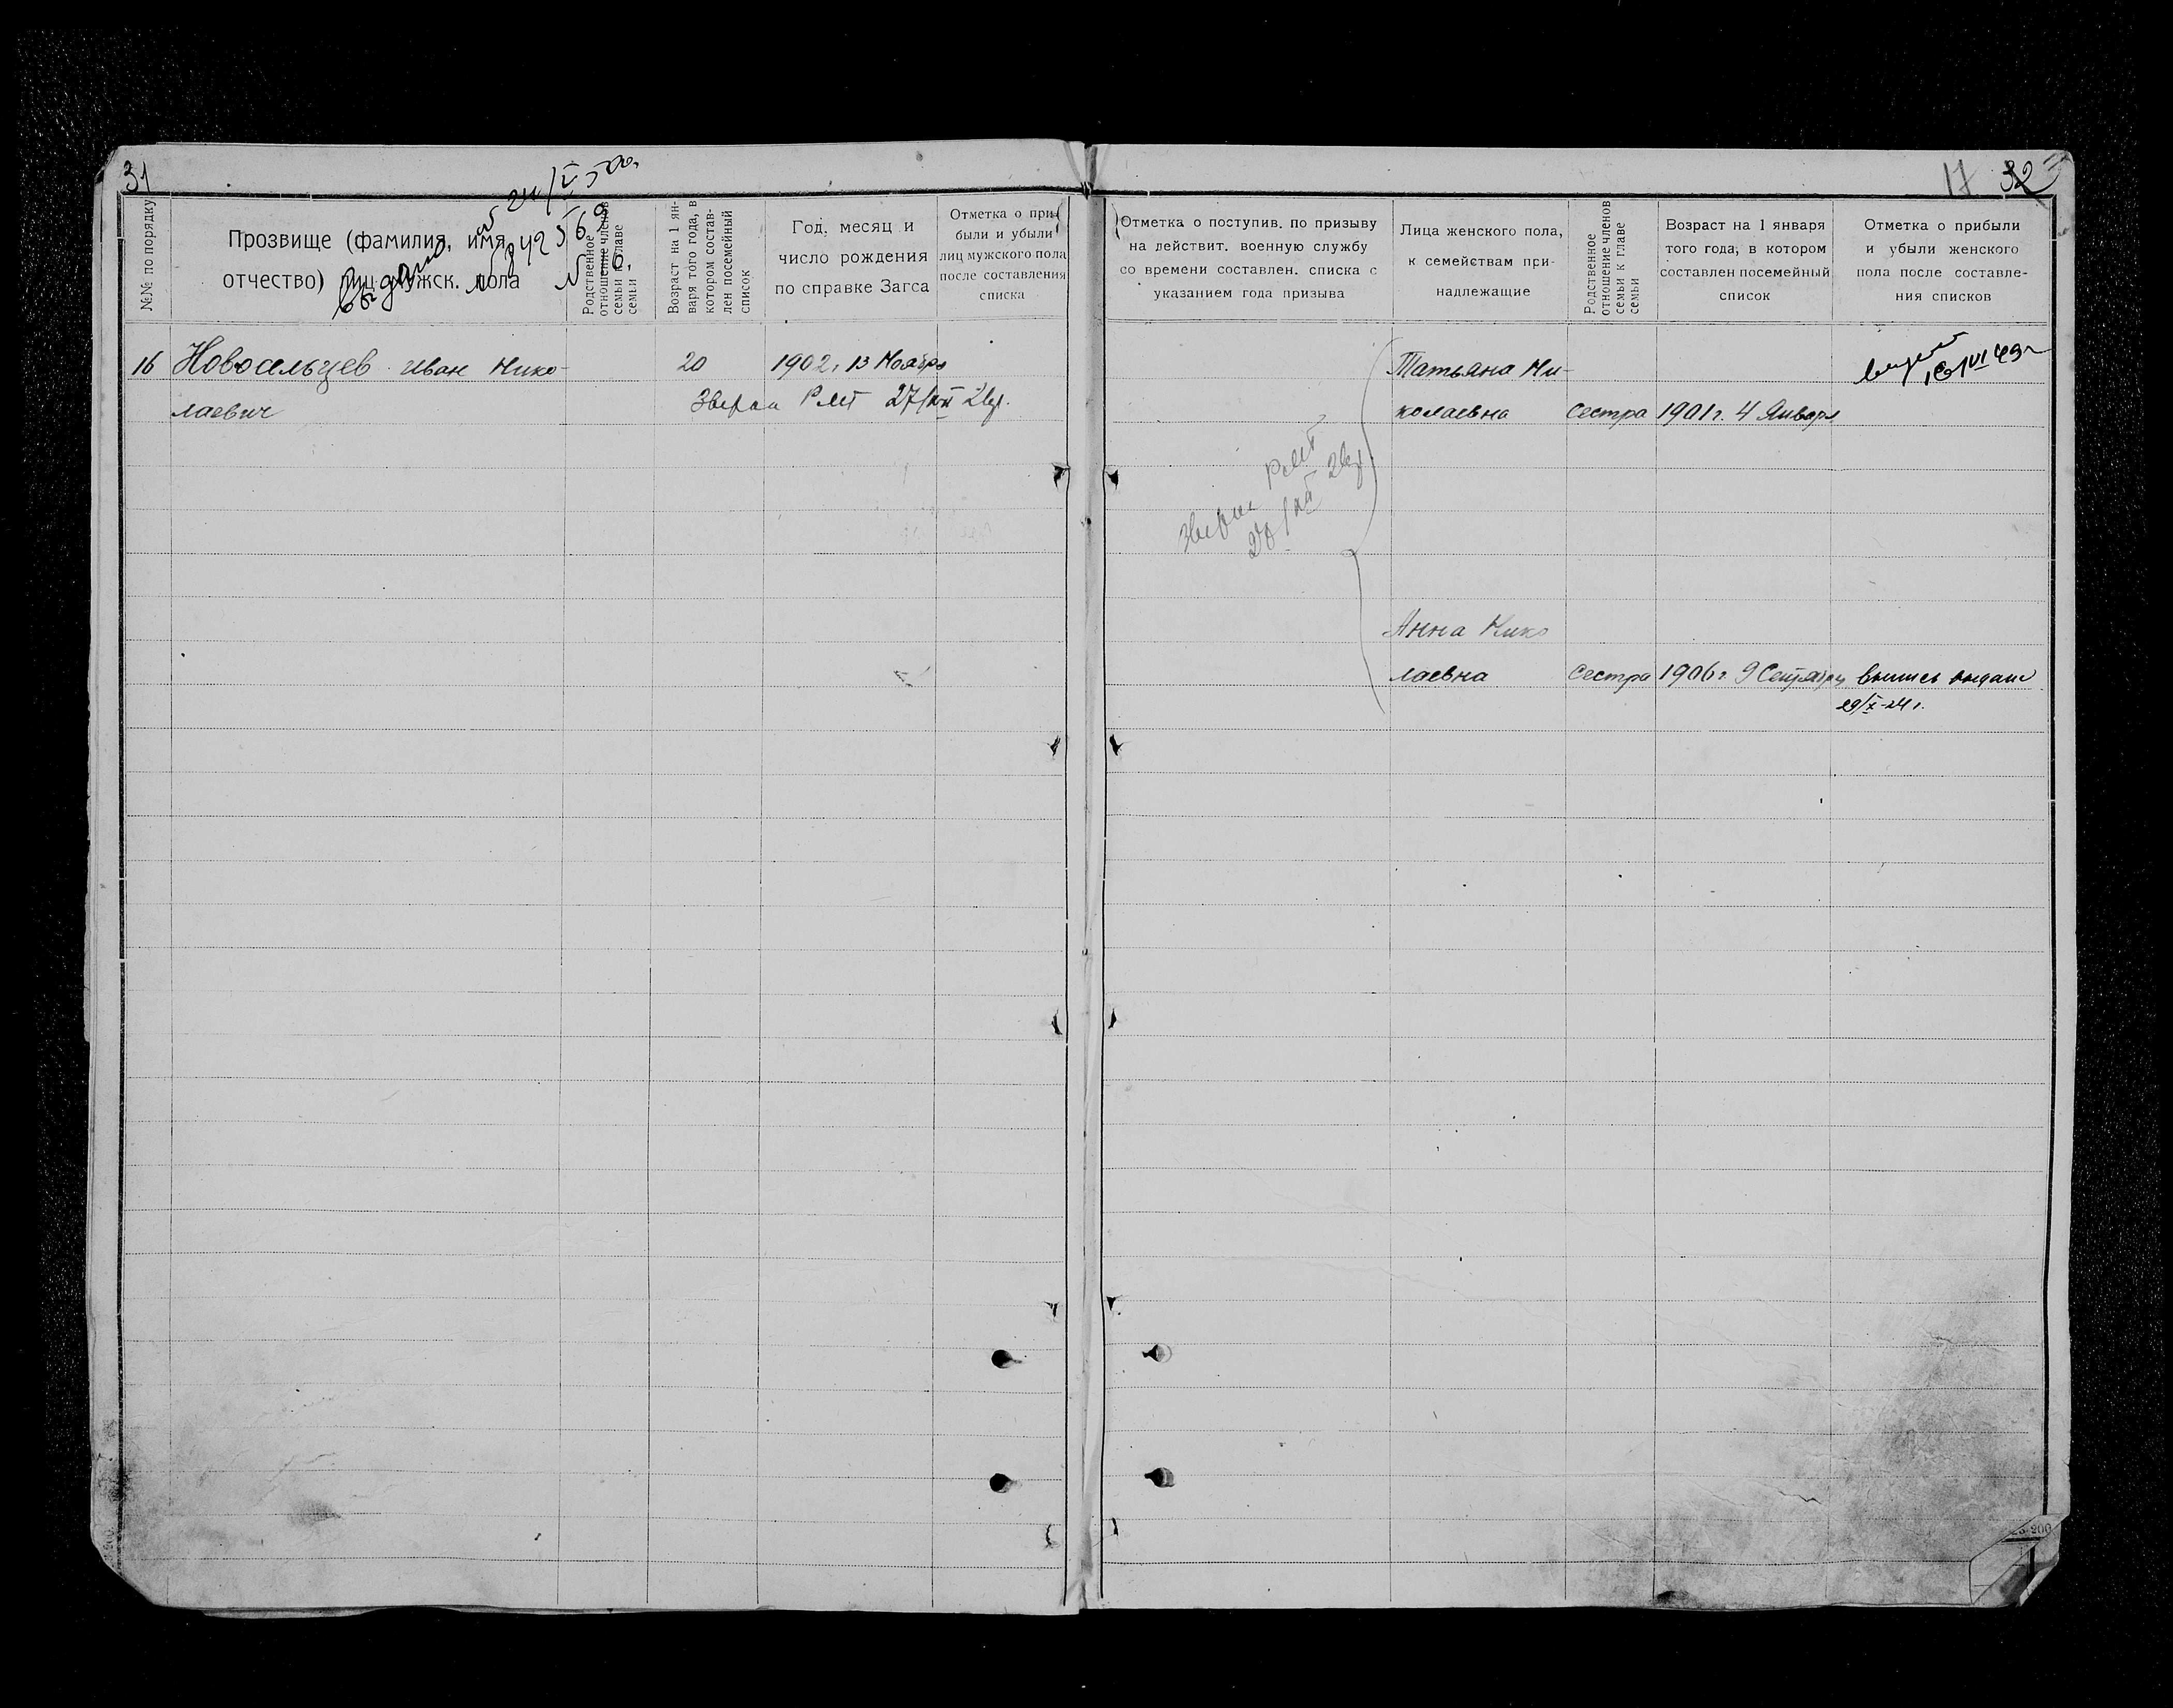 31
17 32
№№ по порядку
Прозвище (фамилия, имя,
отчество) лиц мужск. пола
Родственное
отношение членов
семьи к главе
семьи
Возраст на 1 ян-
варя того года, в
котором состав-
лен посемейный
список
Год, месяц и
число рождения
по справке Загса
Отметка о при-
были и убыли
лиц мужского пола
после составления
списка
Отметка о поступив. по призыву
на действит. военную службу
со времени составлен. списка с
указанием года призыва
Лица женского пола,
к семействам при-
надлежащие
Родственное
отношение членов
семьи к главе
семьи
Возраст на 1 января
того года, в котором
составлен посемейный
список
Отметка о прибыли
и убыли женского
пола после составле-
ния списков
16 Новосельцев Иван Нико-
лаевич
20
1902, 13 Ноября
27/XII
Татьяна Ни-
колаевна сестра 1901 г. 4 Января
Анна Нико
лаевна сестра 1906 г. 9 Сентября выпись выдана
29/X-24 г.